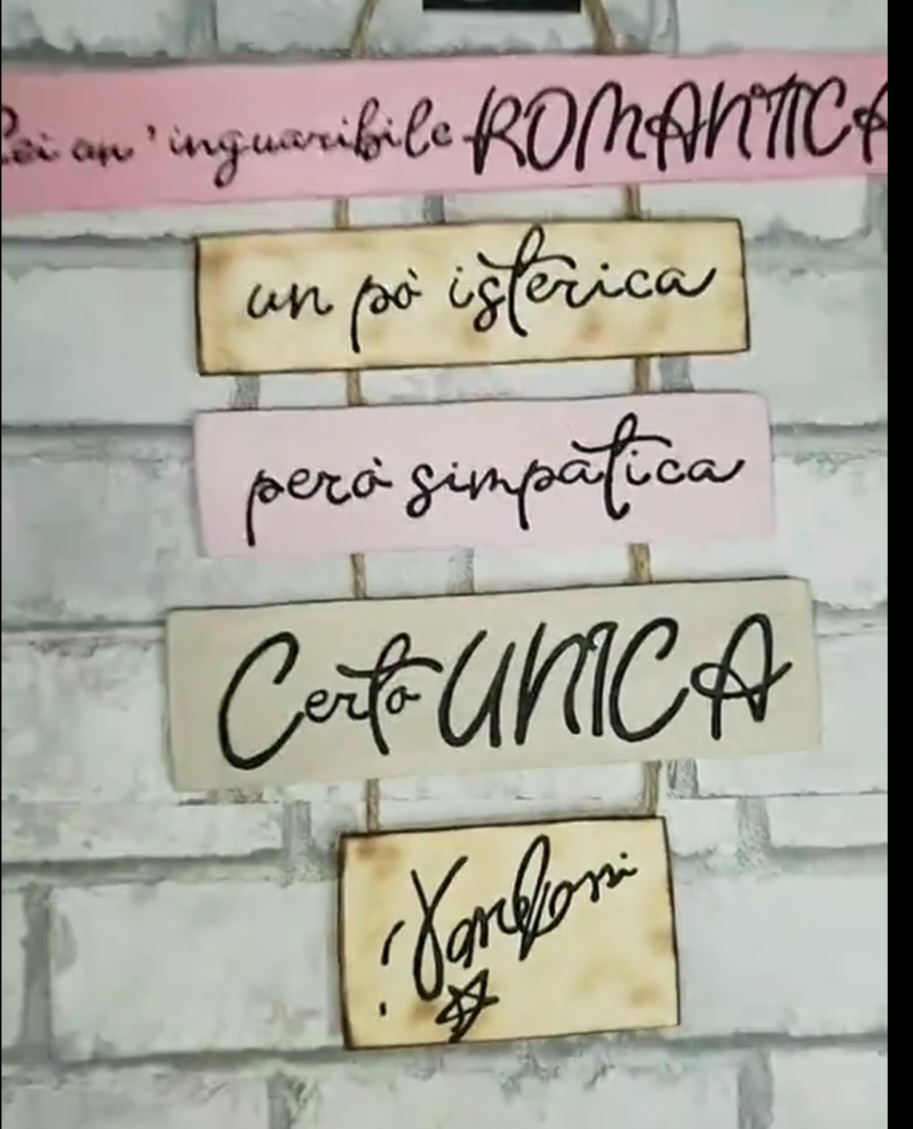 Sei un'inguaribile ROMANTICA
un pò isterica
però simpatica
Certo UNICA